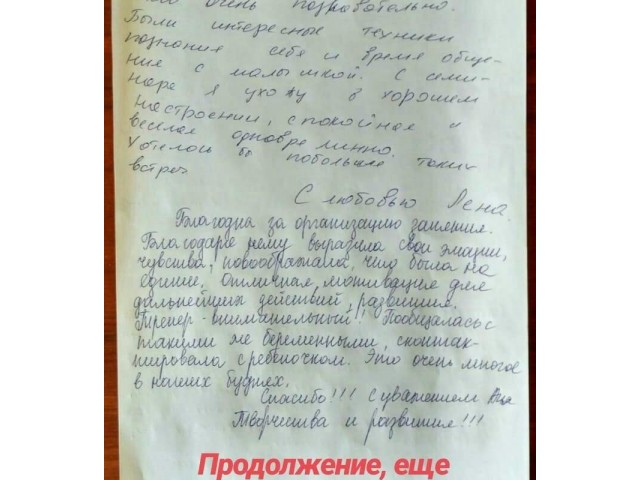 очень познавательно.
Были интересные техники
познания себя и время обще-
ние с малышкой. С семи-
наре я ухожу в хорошем
настроении, спокойная и
веселая одновременно.
Хотелось бы побольше таких
встреч
С любовью Лена.
Благодна за организацию занятия.
Благодаря нему выразила свои эмоции,
чувства, повоображала, что была на
едине. Отличная мотивация для
дальнейших действий, развития.
Тренер - внимательный!! Пообщалась с
такими же беременными, сконтак-
тировала с ребёночком. Это очень многое
в наших буднях.
Спасибо!!! С уважением
Творчества и развития!!!
Продолжение, еще